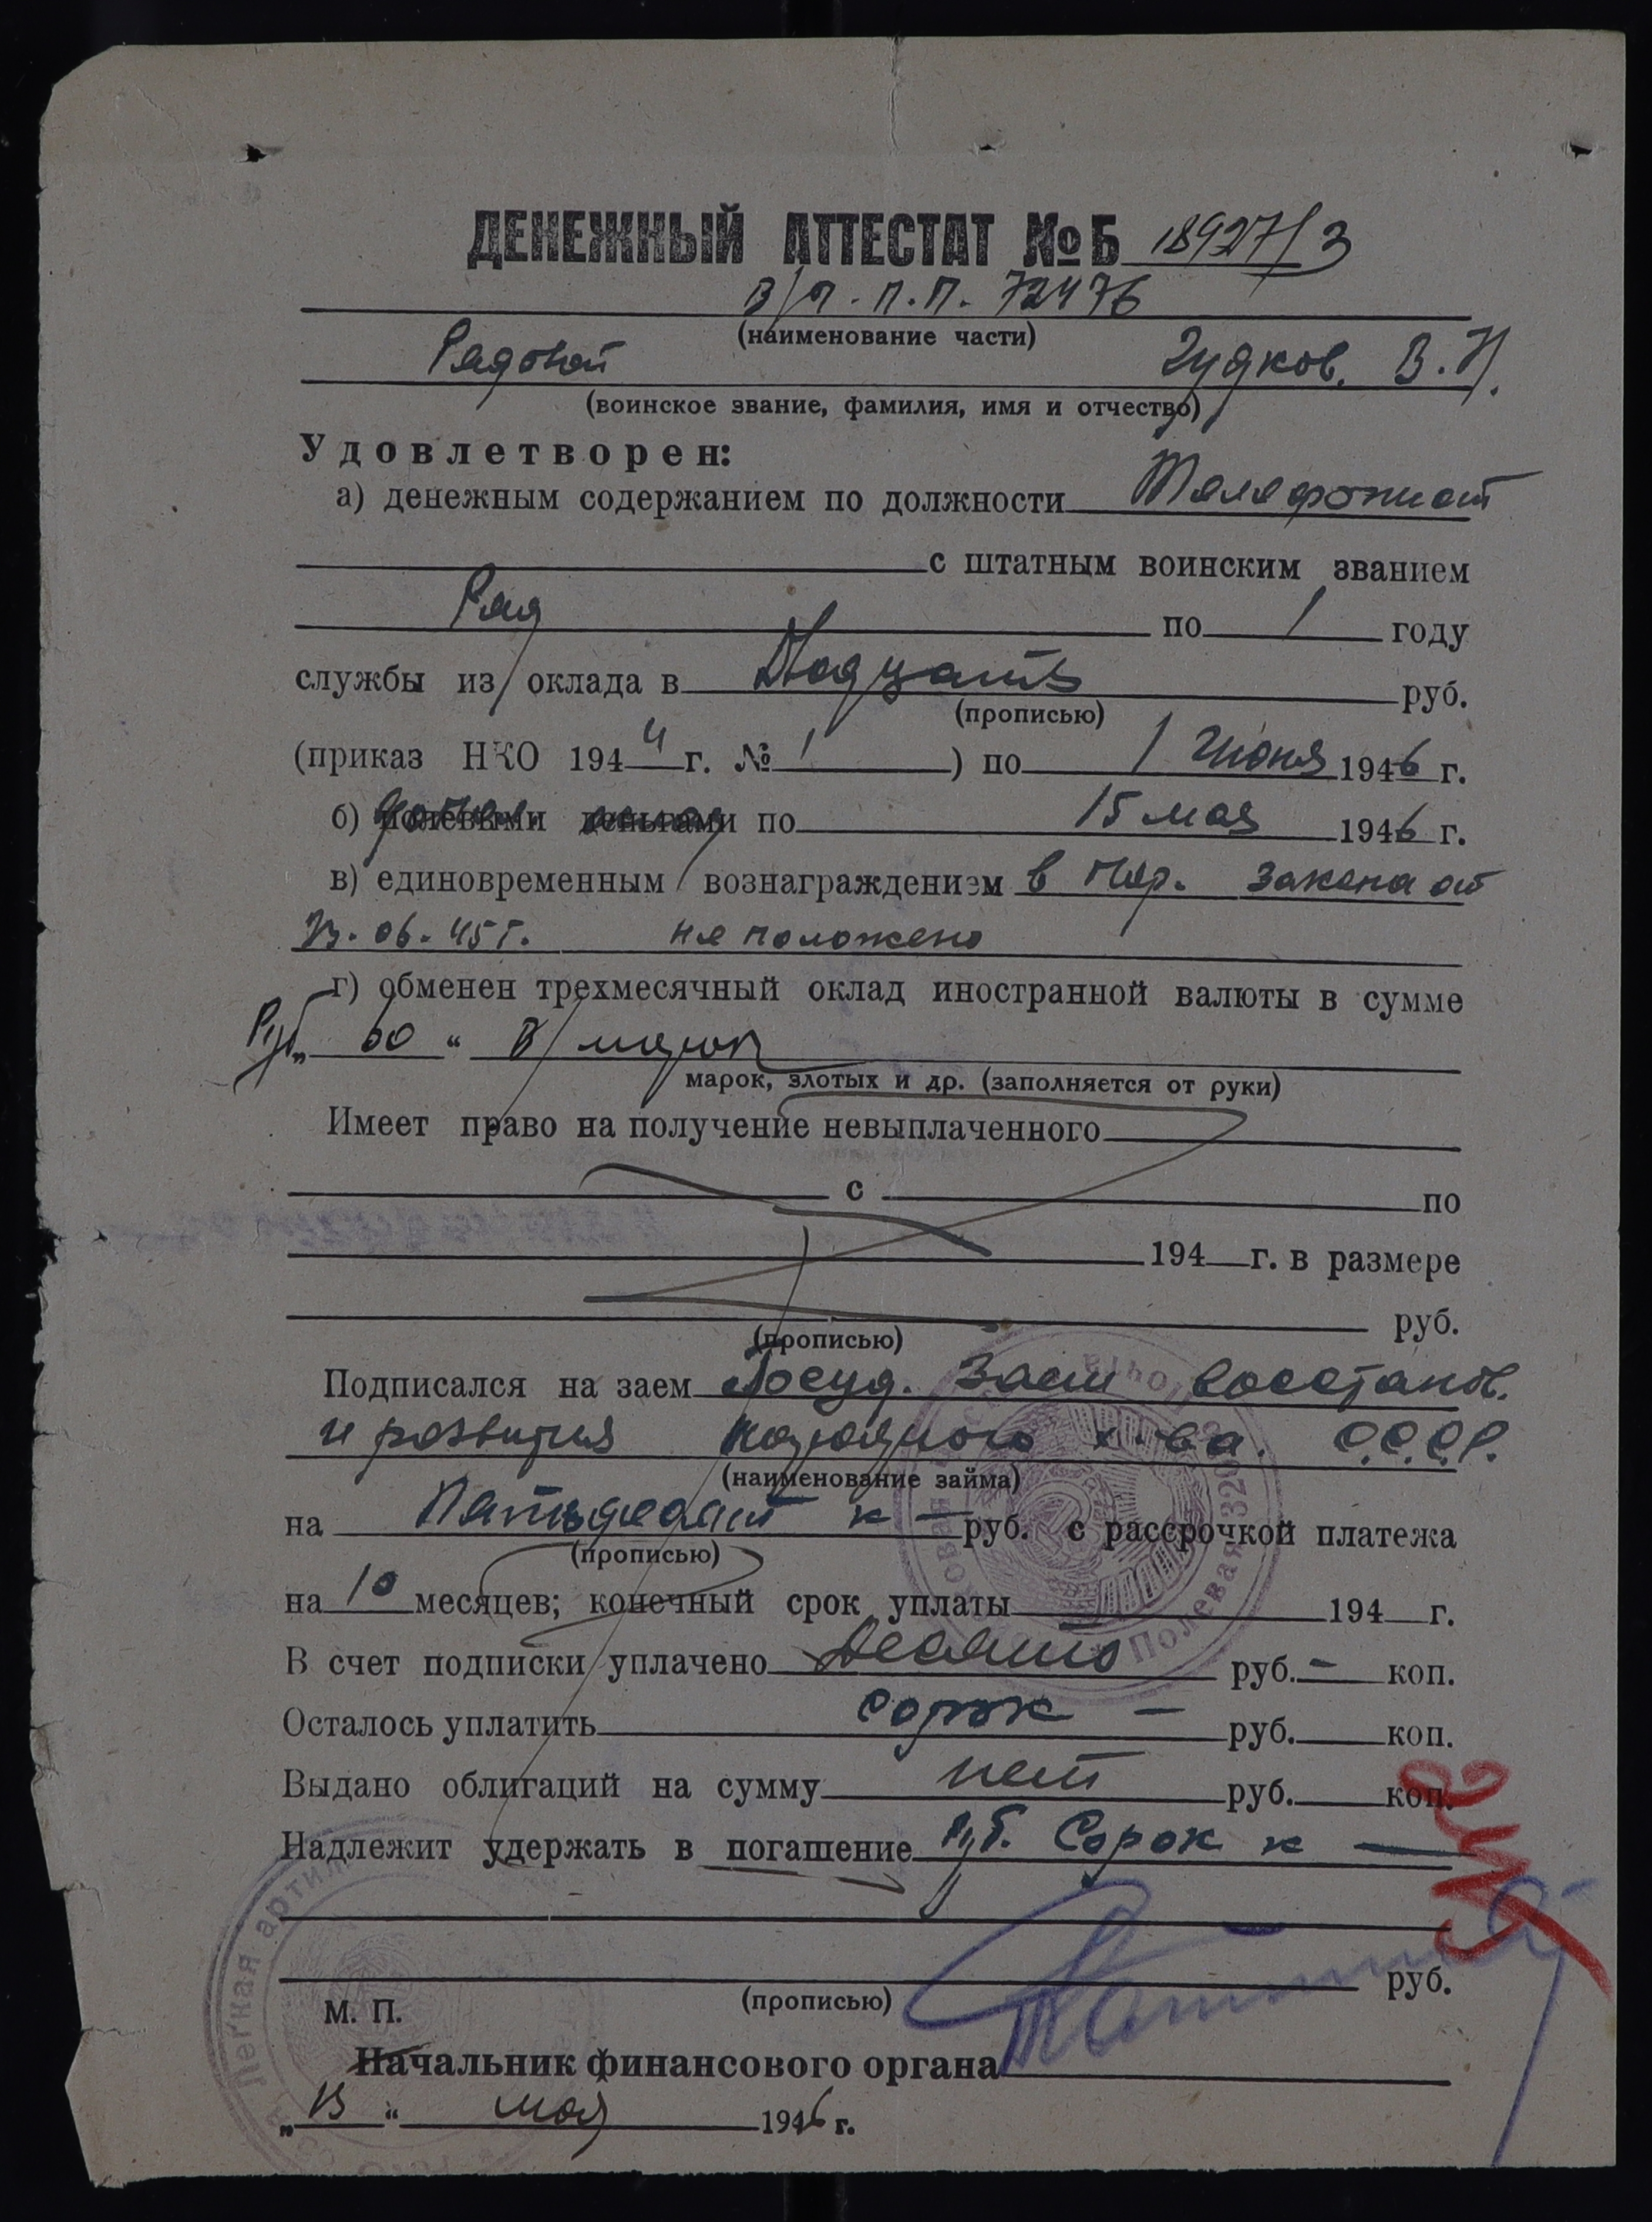 ДЕНЕЖНЫЙ АТТЕСТАТ №Б 18927/3
В/ч. п.п. 72476
(наименование части)
Рядовой Гудков. В. И.
(воинское звание, фамилия, имя и отчество)
Удовлетворен:
а) денежным содержанием по должности Телефонист
с штатным воинским званием
Ряд по 1 году
службы из оклада в Двадцать руб.
(прописью)
(приказ НКО 1944 г. № 1 ) по 1 Июня 1946 г.
б) полевыми деньгами по 15 мая 1946 г.
в) единовременным вознаграждением в пор. закона от
23.06.45 г. не положено
г) обменен трехмесячный оклад иностранной валюты в сумме
Руб „ 60 “ В/ марок
марок, злотых и др. (заполняется от руки)
Имеет право на получение невыплаченного
с по
194 г. в размере
руб.
(прописью)
Подписался на заем Госуд. Заем восстанов.
и развития народного х-ва. С.С.С.Р.
(наименование займа)
на Пятьдесят к — руб. с рассрочкой платежа
(прописью)
на 10 месяцев; конечный срок уплаты 194 г.
В счет подписки уплачено Десять руб. – коп.
Осталось уплатить сорок — руб. коп.
Выдано облигаций на сумму нет руб. коп.
Надлежит удержать в погашение руб. Сорок к —
руб.
(прописью)
М. П.
Легкая артил
Полевая
Начальник финансового органа
„ 13 “ мая 1946 г.